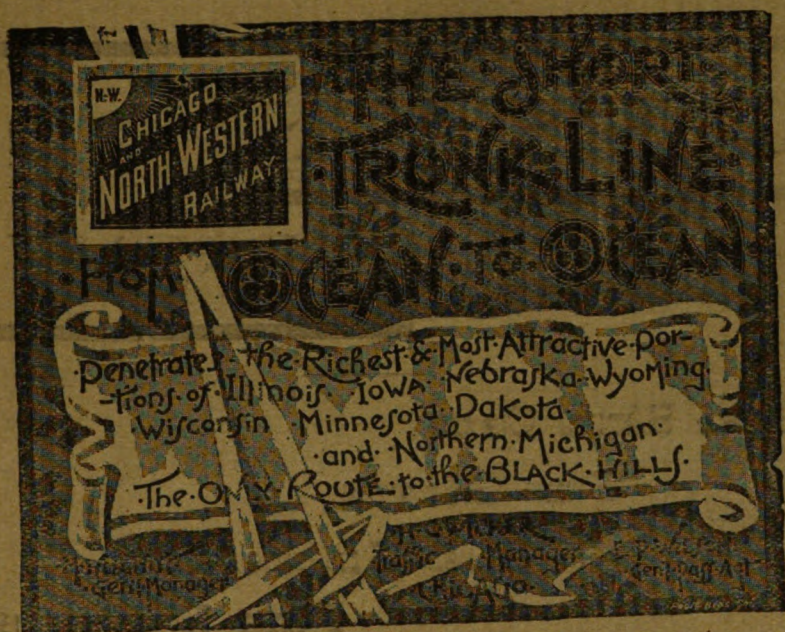 N-W.
CHICAGO
AND
NORTH WESTERN
RAILWAY
THE·SHORT·
·TRUNK·LINE·
·FROM·OCEAN·TO·OCEAN
·Penetrates·the·Richest·&·Most·Attractive·Por-
-tions·of·Illinois·Iowa·Nebraska·Wyoming·
·Wisconsin·Minnesota·Dakota·
·and·Northern·Michigan·
·The·ONLY·ROUTE·to·the·BLACK·HILLS·
Traffic Manager
CHICAGO
Gen'l·Manager
Gen·Pass·Agt